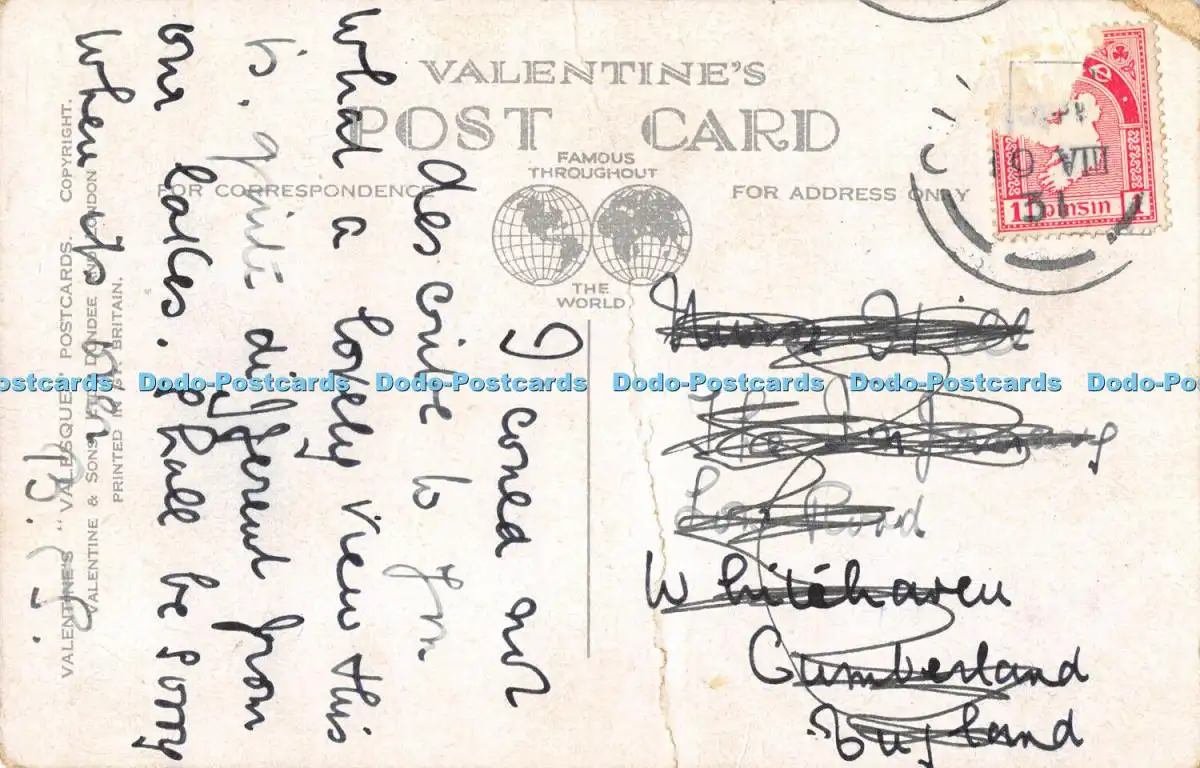 VALENTINE'S
POST CARD
FAMOUS
THROUGHOUT
THE
WORLD
FOR CORRESPONDENCE
FOR ADDRESS ONLY
VALENTINE'S "VALESQUE" POSTCARDS. COPYRIGHT.
VALENTINE & SONS LTD. DUNDEE AND LONDON
PRINTED IN GT. BRITAIN.
I coned not
describe to you
what a lovely view this
is. quite different from
our lakes. Shall be sorry
when its over
The Infirmary
Low Road
Whitehaven
Cumberland
England
10 VIII
31
1 pinsin 1
Dodo-Postcards Dodo-Postcards Dodo-Postcards Dodo-Postcards Dodo-Postcards